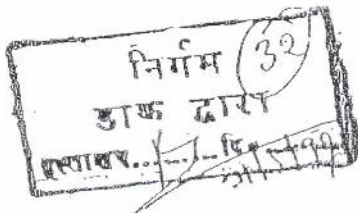 निर्गम
32
डाक द्वारा
हस्ताक्षर